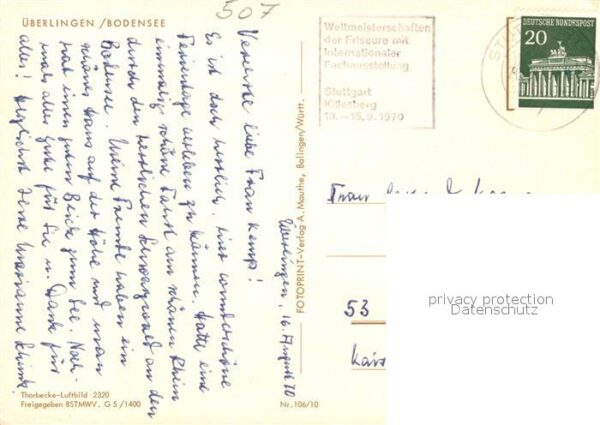 507
ÜBERLINGEN / BODENSEE
Überlingen, 16. August 70
Verehrte liebe Frau Kemp!
Es ist doch herrlich, eine wunderschöne
Ferientage verleben zu können. Hatte eine
einmalig schöne Fahrt am schönen Rhein
durch den herrlichen Schwarzwald an den
Bodensee. Meine Freunde haben ein
schönes Haus auf der Höhe und man
hat einen guten Blick zum See. Noch-
mals alles Gute für Sie u. Dank für
alles! Herzlichst Ihre Marianne
Thorbecke-Luftbild 2320
Freigegeben BSTMWV. G 5 / 1400
Nr. 106/10
FOTOPRINT-Verlag A. Mauthe, Balingen/Württ.
Weltmeisterschaften
der Friseure mit
Internationaler
Fachausstellung
Stuttgart
Killesberg
13.-15.9.1970
DEUTSCHE BUNDESPOST
20
Frau
53
privacy protection
Datenschutz